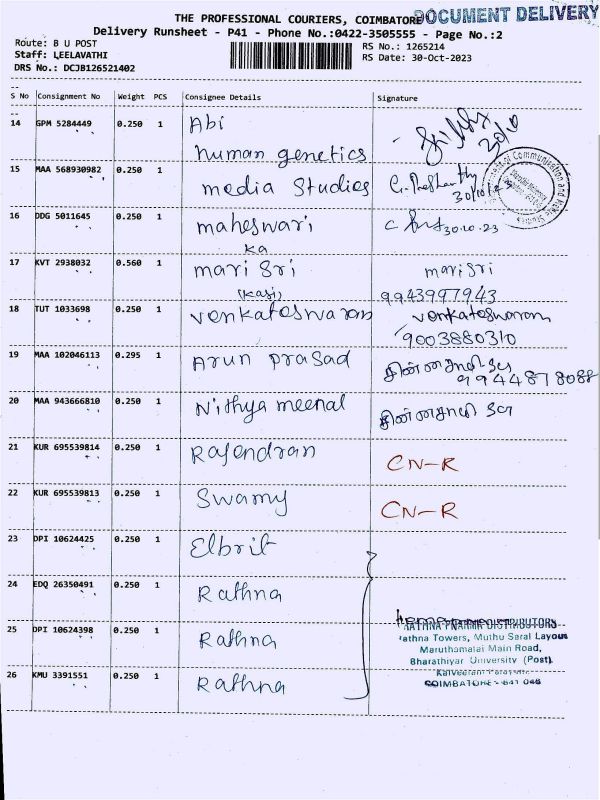 THE PROFESSIONAL COURIERS, COIMBATORE
DOCUMENT DELIVERY
Delivery Runsheet - P41 - Phone No.:0422-3505555 - Page No.:2
Route: B U POST
RS No.: 1265214
Staff: LEELAVATHI
RS Date: 30-Oct-2023
DRS No.: DCJB126521402
S No Consignment No Weight PCS Consignee Details Signature
14 GPM 5284449 0.250 1 Abi
30/10
human genetics
15 MAA 568930982 0.250 1 media Studies
30/10/23
16 DDG 5011645 0.250 1 maheswari 30.10.23
ka
17 KVT 2938032 0.560 1 mari Sri mari sri
(kasi) 9943997943
18 TUT 1033698 0.250 1 venkateswaran venkateswaran
9003880310
19 MAA 102046113 0.295 1 Arun prasad
9944878088
20 MAA 943666810 0.250 1 Nithya meenal
21 KUR 695539814 0.250 1 Rajendran CN-R
22 KUR 695539813 0.250 1 Swamy CN-R
23 DPI 10624425 0.250 1 Elbrit
24 EDQ 26350491 0.250 1 Rathna
25 DPI 10624398 0.250 1 Rathna
26 KMU 3391551 0.250 1 Rathna
RATHNA PHARMA DISTRIBUTORS
Rathna Towers, Muthu Saral Layout
Maruthamalai Main Road,
Bharathiyar University (Post),
COIMBATORE - 641 046